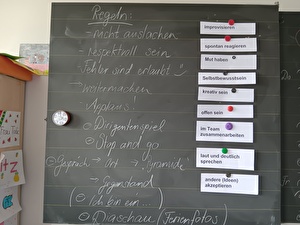 Regeln:
- nicht auslachen
- respektvoll sein
Fehler sind erlaubt
- weitermachen
Applaus!
Dirigentenspiel
Stop and go
Gespräch - Ort -
Gegenstand
(Ich bin ein...)
Diaschau (Ferienfotos)
improvisieren
spontan reagieren
Mut haben
Selbstbewusstsein
kreativ sein
offen sein
im Team
zusammenarbeiten
laut und deutlich
sprechen
andere (Ideen)
akzeptieren